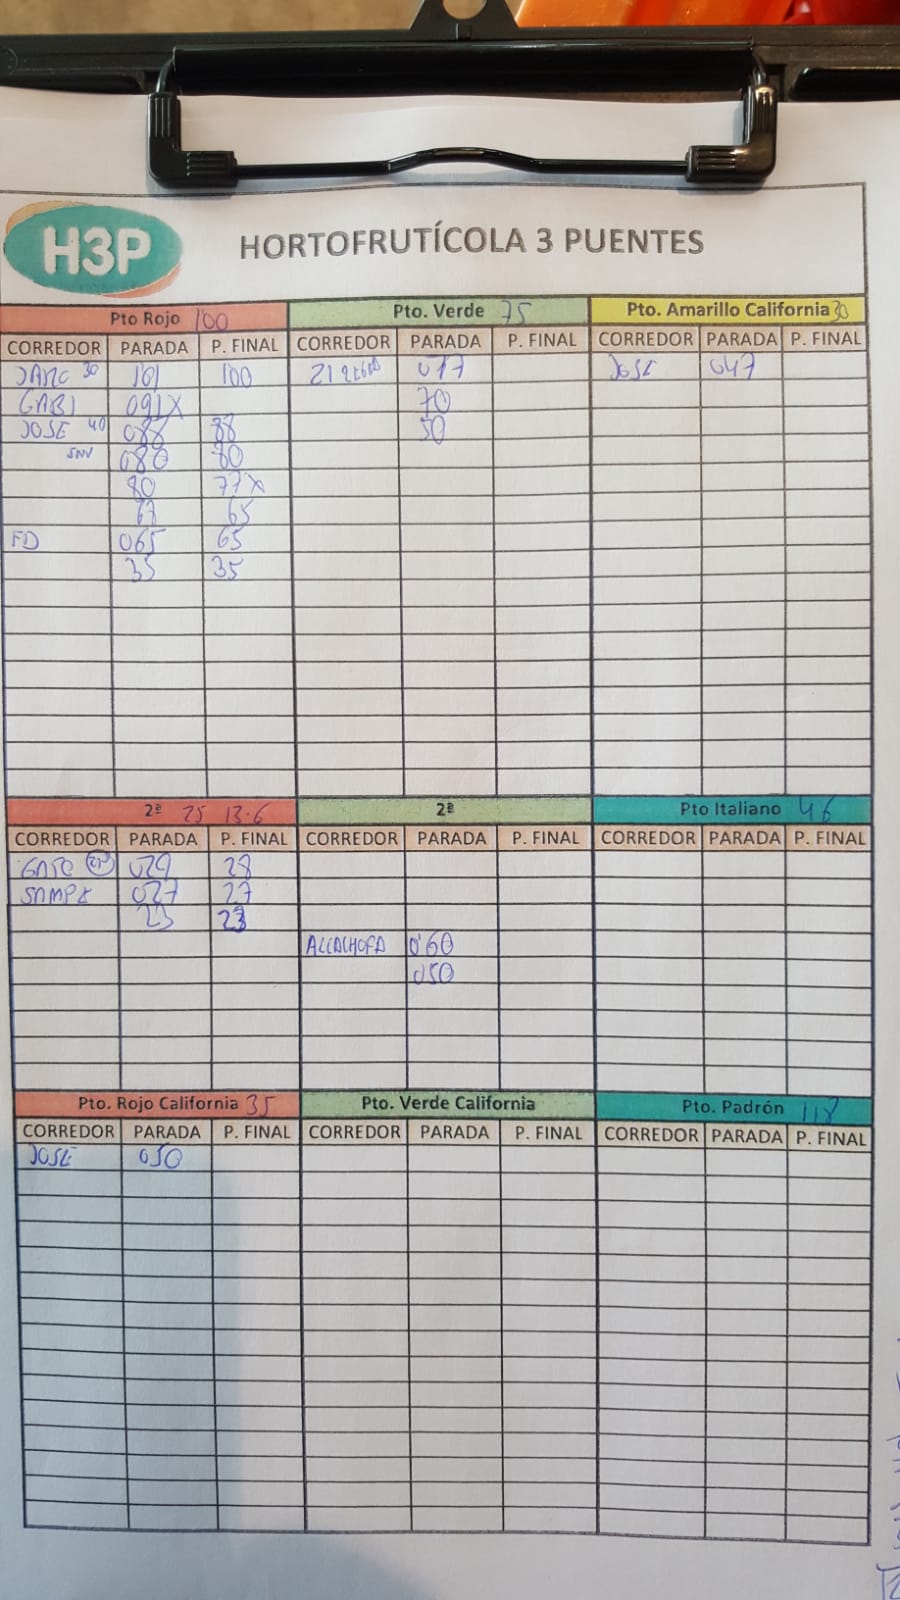 H3P
HORTOFRUTÍCOLA 3 PUENTES
Pto Rojo 100 Pto. Verde 75 Pto. Amarillo California 30
CORREDOR PARADA P. FINAL CORREDOR PARADA P. FINAL CORREDOR PARADA P. FINAL
30 101 100 077 JOSE 047
GABI 091X 70
JOSE 40 088 88 50
080 80
80 77X
67 65
FD 065 65
35 35
2ª 25 13.6 2ª Pto Italiano 46
CORREDOR PARADA P. FINAL CORREDOR PARADA P. FINAL CORREDOR PARADA P. FINAL
029 28
027 27
23 23
ALCACHOFA 0'60
050
Pto. Rojo California 35 Pto. Verde California Pto. Padrón 118
CORREDOR PARADA P. FINAL CORREDOR PARADA P. FINAL CORREDOR PARADA P. FINAL
JOSE 050